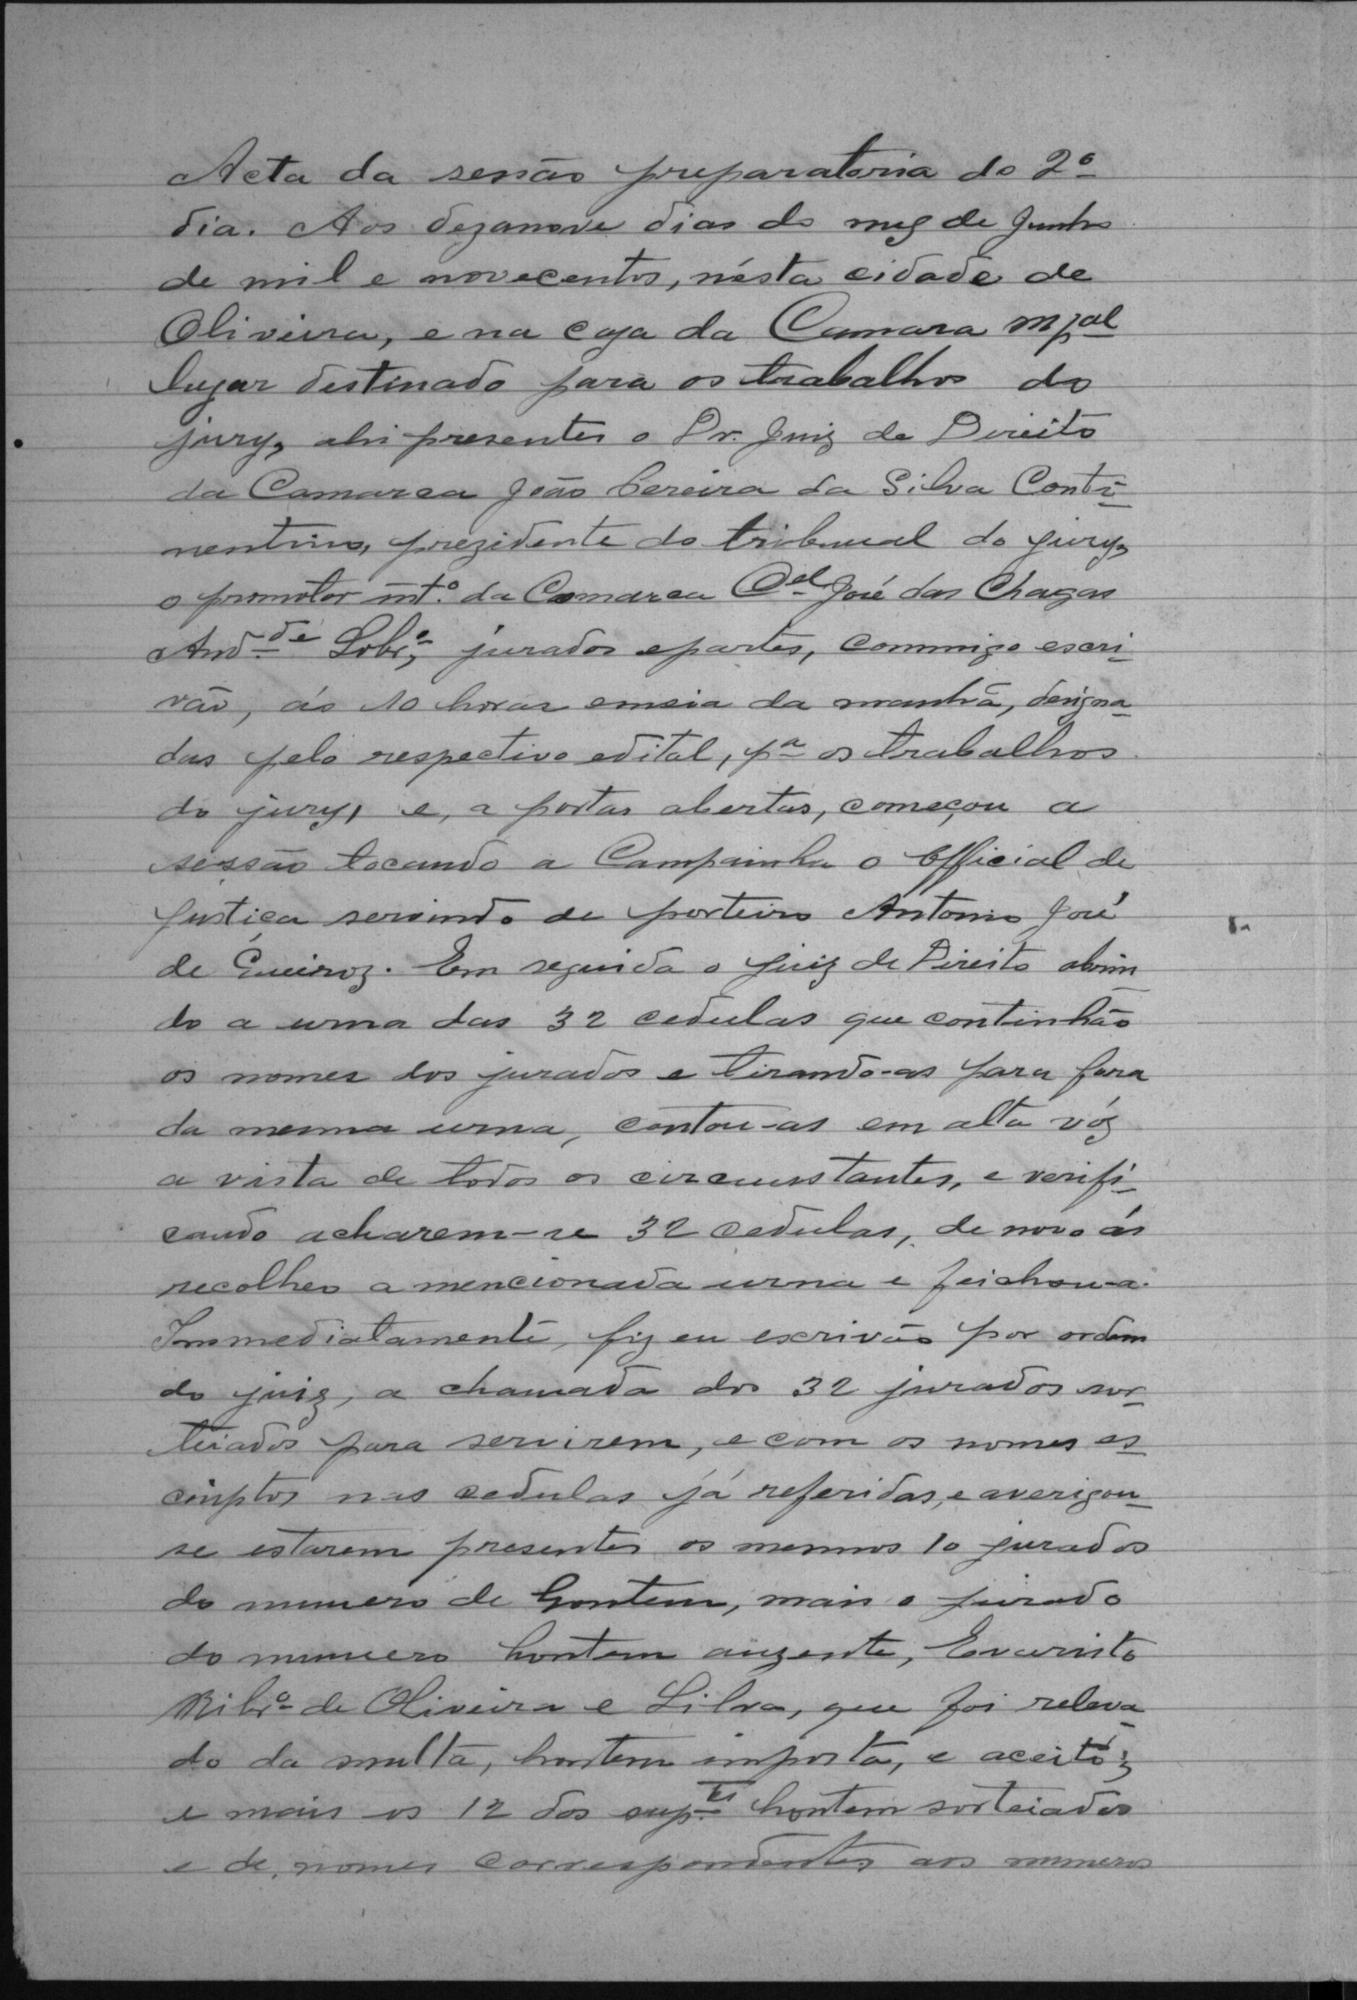 Acta da sessão preparatoria do 2º
dia. Aos dezanove dias do mez de Junho
de mil e novecentos, nésta cidade de
Oliveira, e na caza da Camara Mpal
lugar destinado para os trabalhos do
jury, ahi presentes o Dr. Juiz de Direito
da Comarca João Pereira da Silva Conti-
nentino, prezidente do tribunal do jury,
o promotor int.º da Comarca Cel José das Chagas
And.de Sobr.º, jurados e partes, commigo escri-
vão, ás 10 horas e meia da manhã, designa-
das pelo respectivo edital, pª os trabalhos
do jury, e, a portas abertas, começou a
sessão tocando a Campainha o Official de
justiça servindo de porteiro Antonio José
de Queiroz. Em seguida o Juiz de Direito abrin
do a urna das 32 cedulas que continhão
os nomes dos jurados e tirando-as para fora
da mesma urna, contou-as em alta vóz
a vista de todos os circunstantes, e verifi-
cando acharem-se 32 cedulas, de novo ás
recolheo a mencionada urna e feichou-a.
Immediatamente, fiz eu escrivão por ordem
do juiz, a chamada dos 32 jurados sor-
teiados para servirem, e com os nomes es-
criptos nas cedulas já referidas, e averigou-
se estarem presentes os mesmos 10 jurados
do numero de hontem, mais o jurado
do numero hontem auzente, Evaristo
Ribrº de Oliveira e Silva, que foi releva
do da multa, hontem imposta, e aceito;
e mais os 12 dos sup.tes hontem sorteiados
e de nomes correspondentes aos numeros